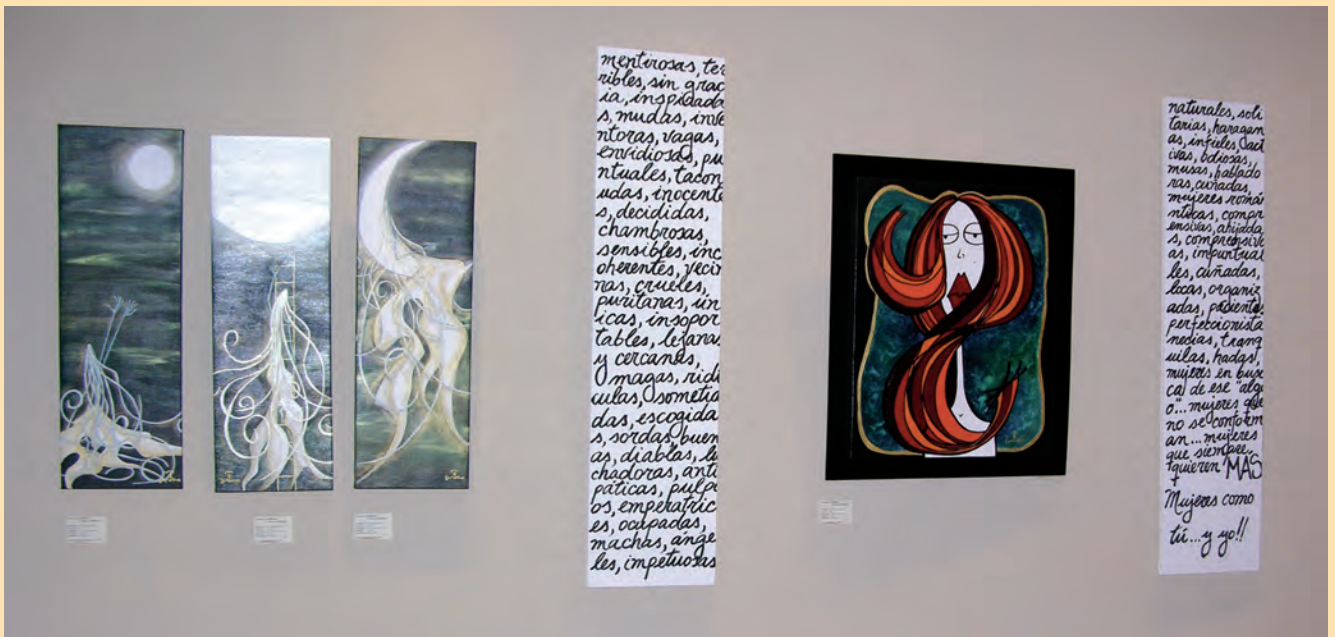 mentirosas, ter
ribles, sin grac
ia, inspirada
s, mudas, inve
ntoras, vagas,
envidiosas, pu
ntuales, tacon
udas, inocente
s, decididas,
chambrosas,
sensibles, inc
oherentes, veci
nas, crueles,
puritanas, ún
icas, insopor
tables, lejanas
y cercanas,
magas, ridí
culas, sometid
das, escogida
s, sordas, buen
as, diablas, lu
chadoras, anti
páticas, pulp
os, emperatric
es, ocupadas,
machas, ánge
les, impetuosas
naturales, soli
tarias, haragan
as, infieles, act
ivas, odiosas,
musas, hablado
ras, cuñadas,
mujeres román
ticas, compr
ensivas, ahijada
s, comprensiv
as, impuntual
les, cuñadas,
locas, organiz
adas, pacientes
perfeccionista
necias, tranq
uilas, hadas,
mujeres en bus
ca de ese "alg
o"... mujeres que
no se conform
an... mujeres
que siempre
quieren MÁS
Mujeres como
tú... y yo!!